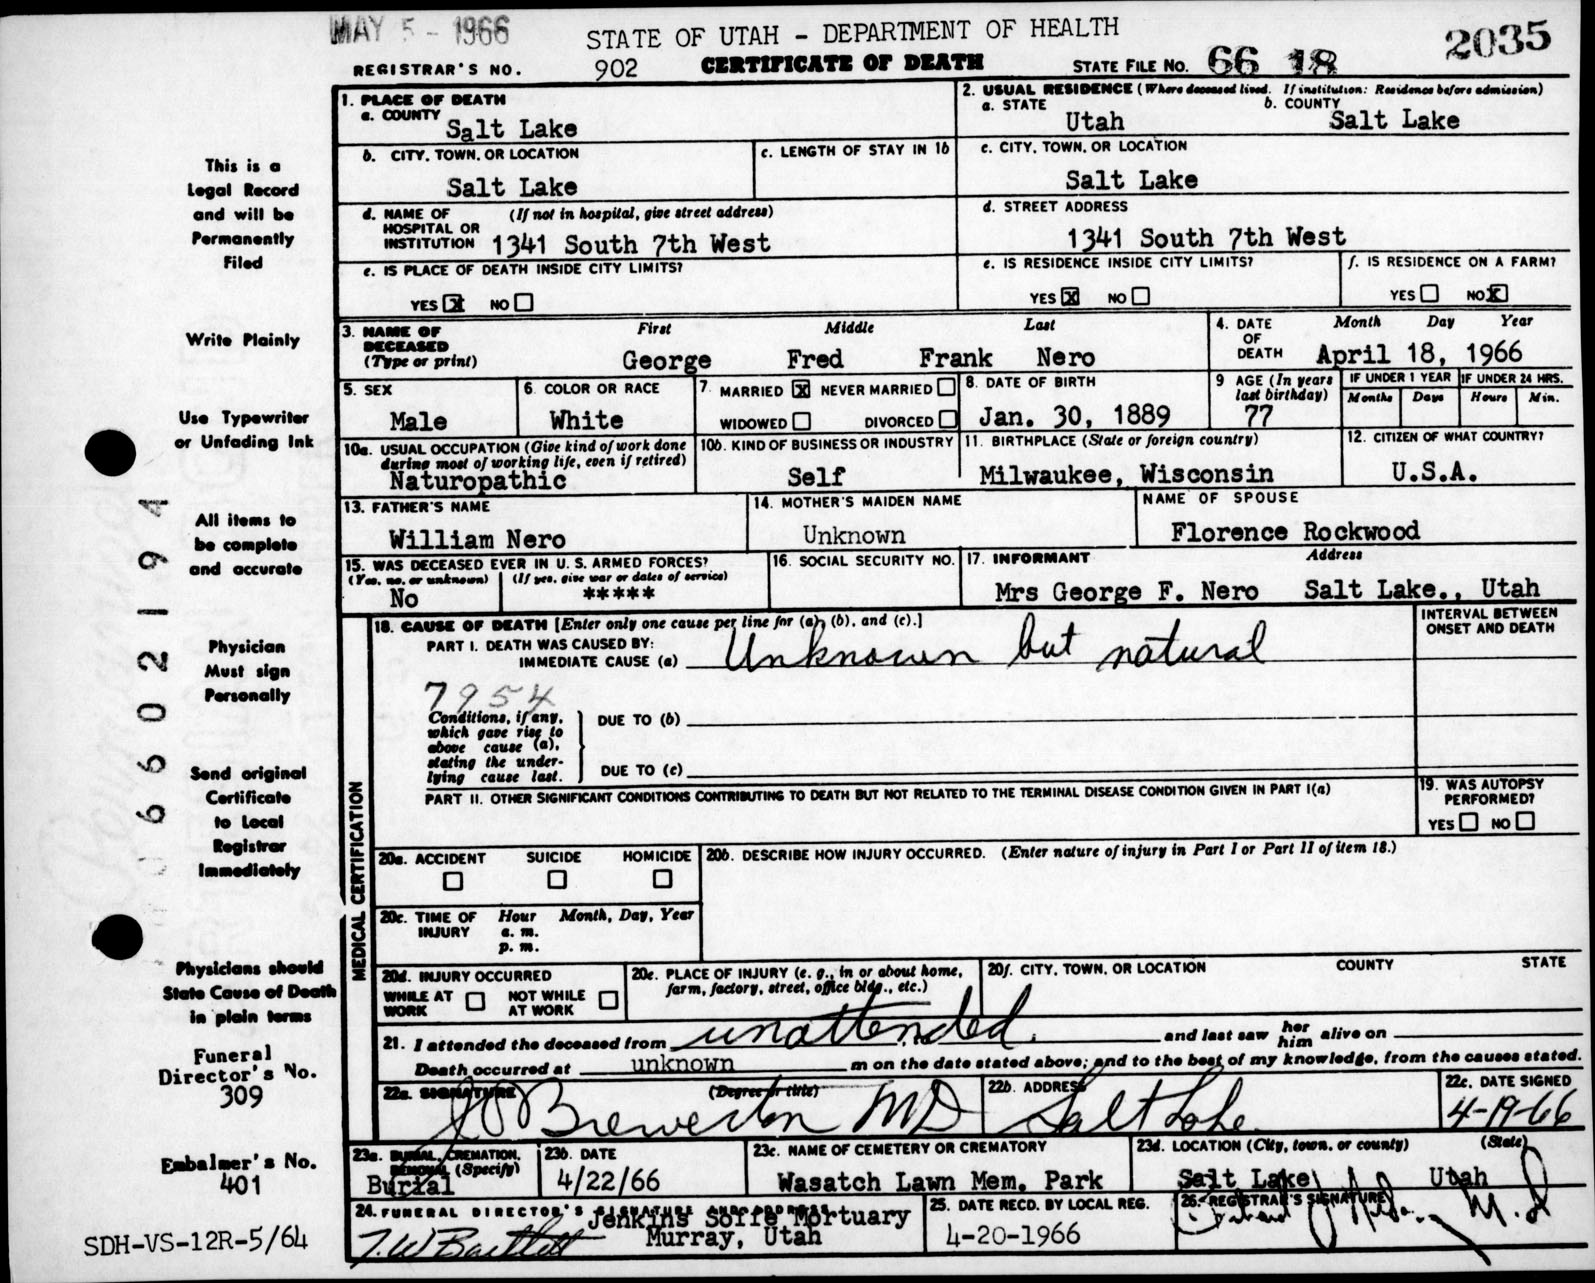 MAY 5 - 1966
STATE OF UTAH - DEPARTMENT OF HEALTH
2035
REGISTRAR'S NO. 902 CERTIFICATE OF DEATH STATE FILE NO. 66 18
1. PLACE OF DEATH
a. COUNTY
Salt Lake
2. USUAL RESIDENCE (Where deceased lived. If institution: Residence before admission)
a. STATE b. COUNTY
Utah Salt Lake
b. CITY, TOWN, OR LOCATION
Salt Lake
c. LENGTH OF STAY IN 1b
c. CITY, TOWN, OR LOCATION
Salt Lake
d. NAME OF (If not in hospital, give street address)
HOSPITAL OR
INSTITUTION 1341 South 7th West
d. STREET ADDRESS
1341 South 7th West
e. IS PLACE OF DEATH INSIDE CITY LIMITS?
YES X NO
e. IS RESIDENCE INSIDE CITY LIMITS?
YES X NO
f. IS RESIDENCE ON A FARM?
YES NO X
3. NAME OF First Middle Last
DECEASED
(Type or print) George Fred Frank Nero
4. DATE Month Day Year
OF
DEATH April 18, 1966
5. SEX
Male
6. COLOR OR RACE
White
7. MARRIED X NEVER MARRIED
WIDOWED DIVORCED
8. DATE OF BIRTH
Jan. 30, 1889
9 AGE (In years
last birthday)
77
IF UNDER 1 YEAR
Months Days
IF UNDER 24 HRS.
Hours Min.
10a. USUAL OCCUPATION (Give kind of work done
during most of working life, even if retired)
Naturopathic
10b. KIND OF BUSINESS OR INDUSTRY
Self
11. BIRTHPLACE (State or foreign country)
Milwaukee, Wisconsin
12. CITIZEN OF WHAT COUNTRY?
U.S.A.
13. FATHER'S NAME
William Nero
14. MOTHER'S MAIDEN NAME
Unknown
NAME OF SPOUSE
Florence Rockwood
15. WAS DECEASED EVER IN U. S. ARMED FORCES?
(Yes, no, or unknown) (If yes, give war or dates of service)
No *****
16. SOCIAL SECURITY NO.
17. INFORMANT Address
Mrs George F. Nero Salt Lake., Utah
18. CAUSE OF DEATH [Enter only one cause per line for (a), (b), and (c).]
PART I. DEATH WAS CAUSED BY:
IMMEDIATE CAUSE (a) Unknown but natural
INTERVAL BETWEEN
ONSET AND DEATH
7954
Conditions, if any,
which gave rise to
above cause (a),
stating the under-
lying cause last.
DUE TO (b)
DUE TO (c)
PART II. OTHER SIGNIFICANT CONDITIONS CONTRIBUTING TO DEATH BUT NOT RELATED TO THE TERMINAL DISEASE CONDITION GIVEN IN PART I(a)
19. WAS AUTOPSY
PERFORMED?
YES NO
MEDICAL CERTIFICATION
20a. ACCIDENT SUICIDE HOMICIDE
20b. DESCRIBE HOW INJURY OCCURRED. (Enter nature of injury in Part I or Part II of item 18.)
20c. TIME OF Hour Month, Day, Year
INJURY a. m.
p. m.
20d. INJURY OCCURRED
WHILE AT NOT WHILE
WORK AT WORK
20e. PLACE OF INJURY (e. g., in or about home,
farm, factory, street, office bldg., etc.)
20f. CITY, TOWN, OR LOCATION COUNTY STATE
21. I attended the deceased from unattended. and last saw her him alive on
Death occurred at unknown m on the date stated above; and to the best of my knowledge, from the causes stated.
22a. SIGNATURE (Degree or title)
Brewerton MD
22b. ADDRESS
Salt Lake
22c. DATE SIGNED
4-19-66
23a. BURIAL, CREMATION,
REMOVAL (Specify)
Burial
23b. DATE
4/22/66
23c. NAME OF CEMETERY OR CREMATORY
Wasatch Lawn Mem. Park
23d. LOCATION (City, town, or county) (State)
Salt Lake Utah
24. FUNERAL DIRECTOR'S SIGNATURE AND ADDRESS
Jenkins Soffe Mortuary
Murray, Utah
T.W Bartlett
25. DATE RECD. BY LOCAL REG.
4-20-1966
26. REGISTRAR'S SIGNATURE
M.D
This is a
Legal Record
and will be
Permanently
Filed
Write Plainly
Use Typewriter
or Unfading Ink
All items to
be complete
and accurate
Physician
Must sign
Personally
Send original
Certificate
to Local
Registrar
Immediately
Physicians should
State Cause of Death
in plain terms
Funeral
Director's No.
309
Embalmer's No.
401
SDH-VS-12R-5/64
066602194